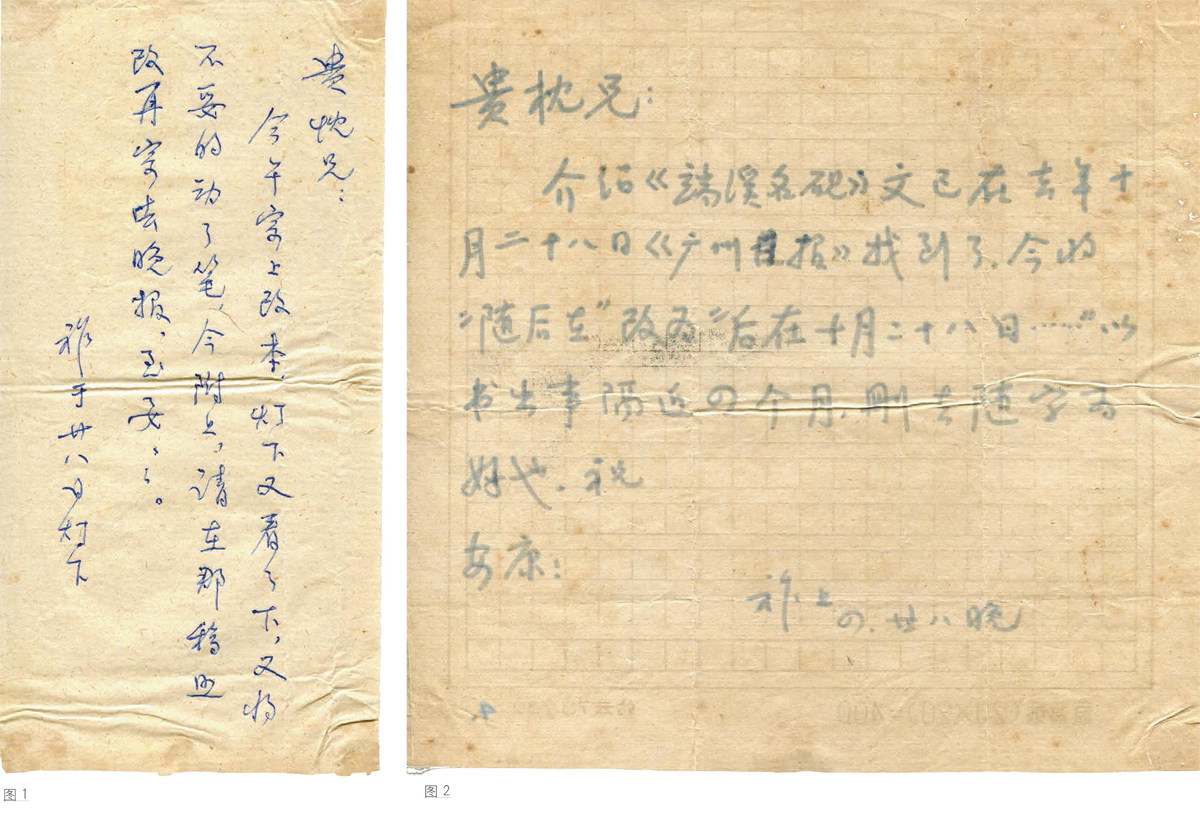 贵忱兄：
今午寄上改本，灯下又看了下，又将
不妥的动了笔，今附上，请在那稿照
改再寄去晚报，至妥々。
祚于廿八日灯下
图 1
贵忱兄：
介绍《端溪名砚》文已在去年十
月二十八日《广州日报》找到了，今将
“随后在”改为“后在十月二十八日……”以
书出事隔近四个月，删去随字为
好也，祝
安康：
祚上
四、廿八晚
图 2